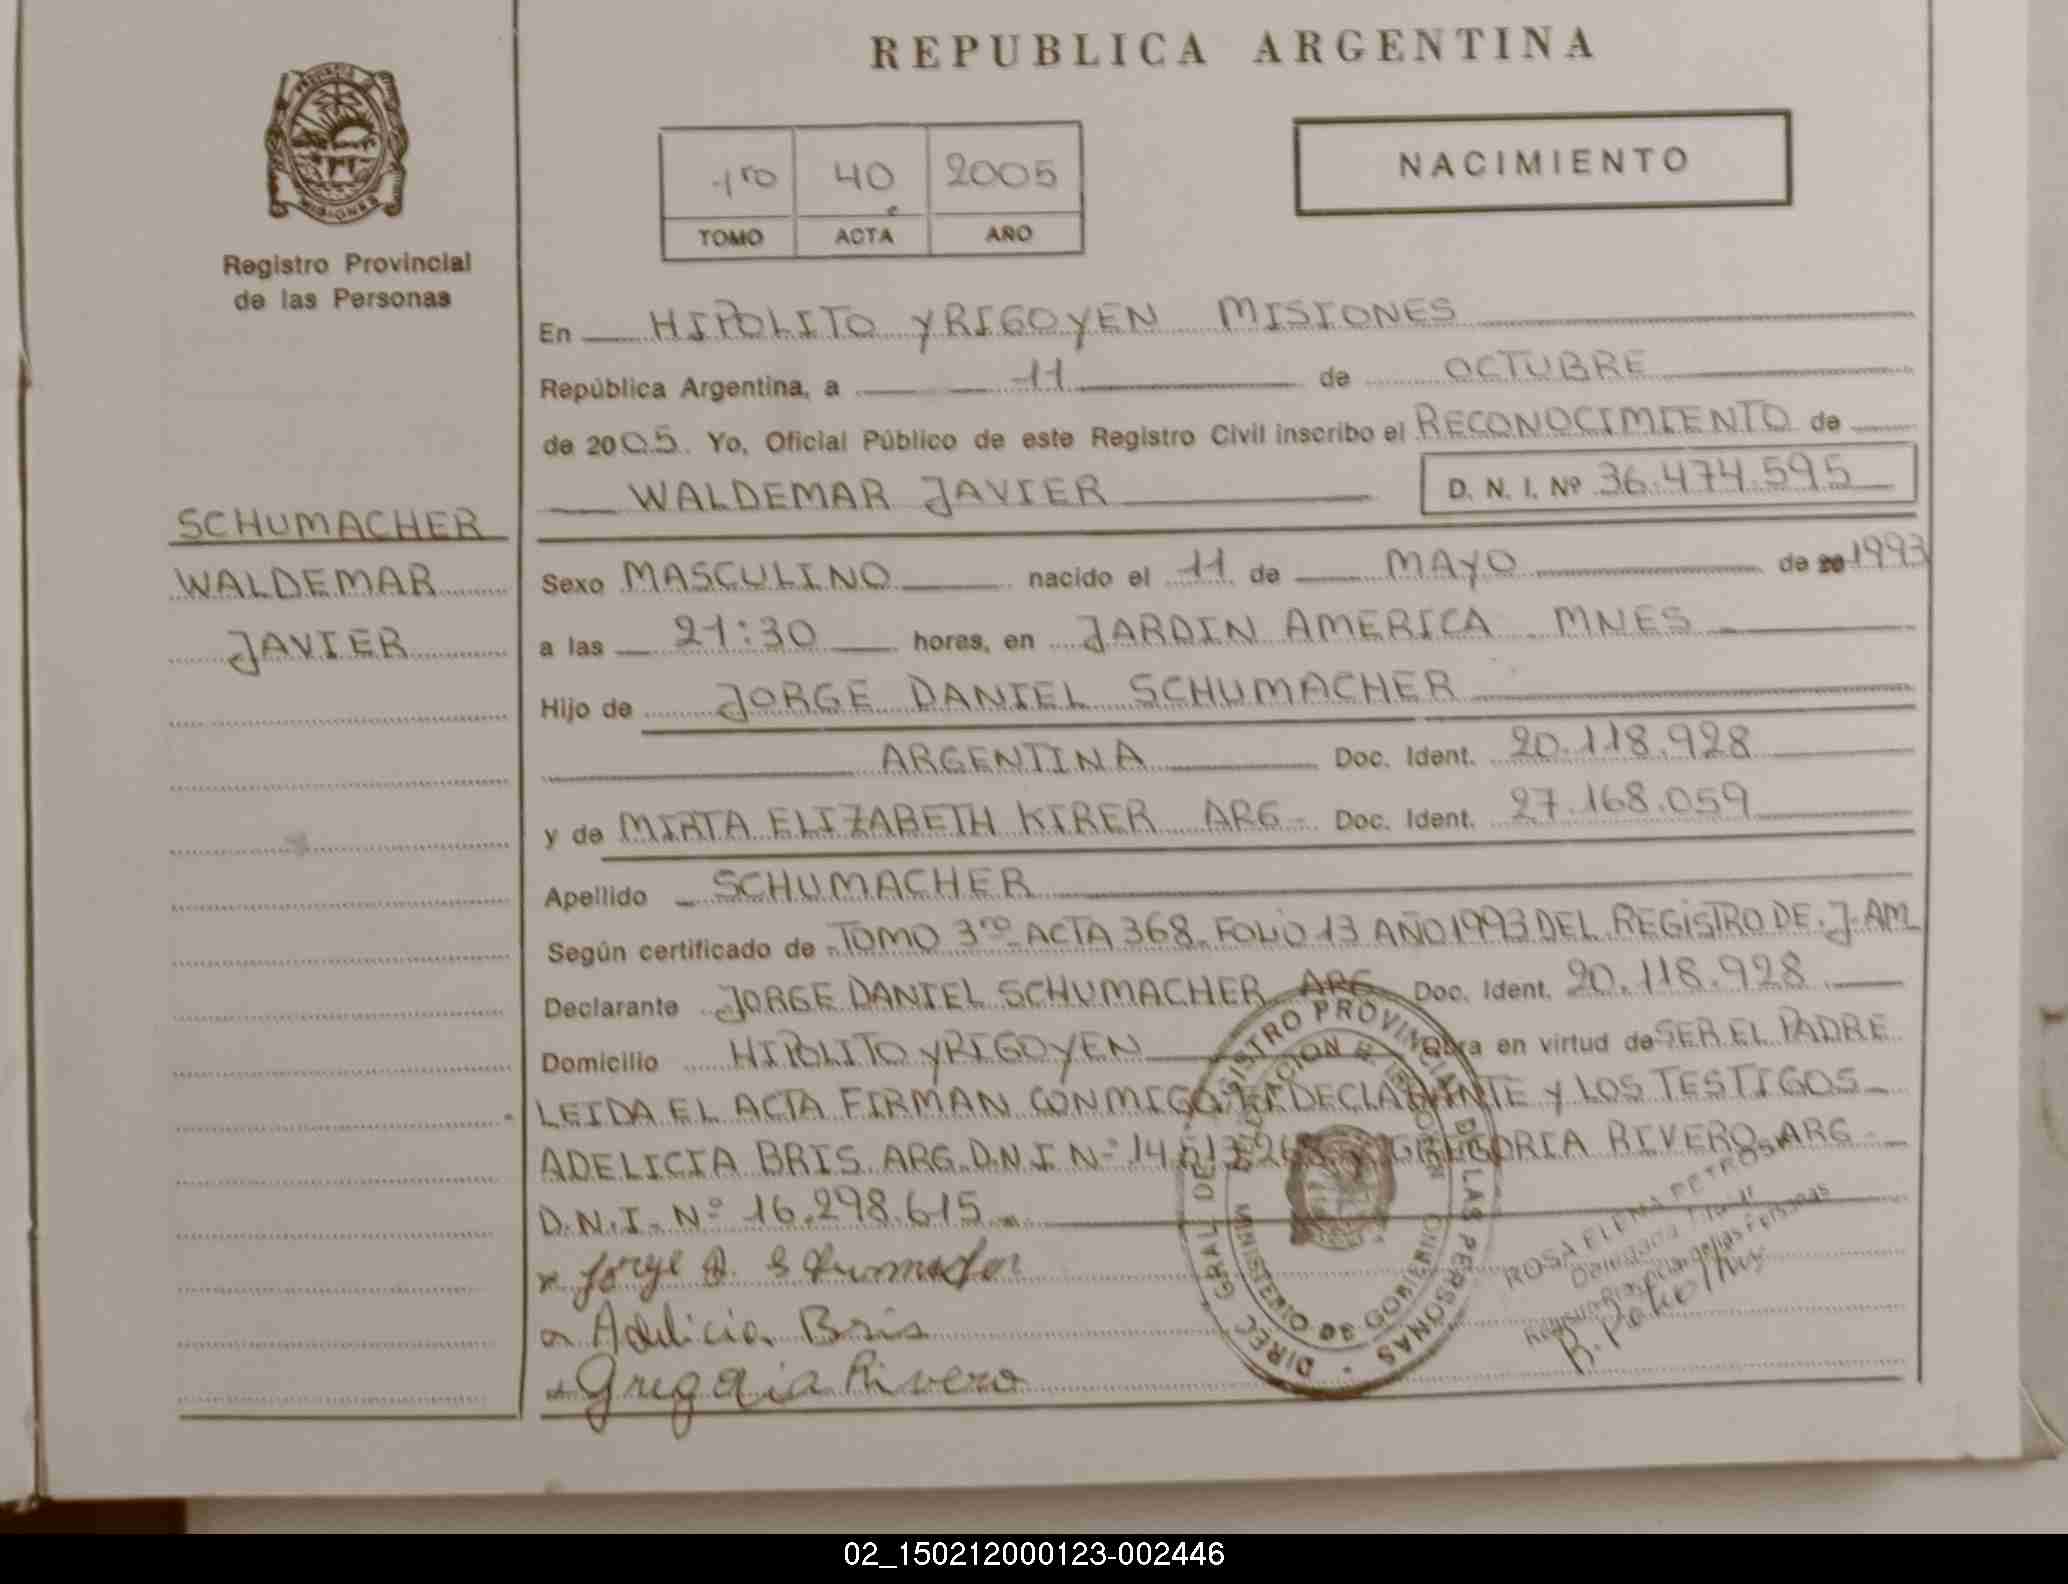 REPUBLICA ARGENTINA
NACIMIENTO
1ro 40 2005
TOMO ACTA AÑO
PROVINCIA DE
MISIONES
Registro Provincial
de las Personas
SCHUMACHER
WALDEMAR
JAVIER
En HIPOLITO YRIGOYEN MISIONES
República Argentina, a 11 de OCTUBRE
de 2005. Yo, Oficial Público de este Registro Civil inscribo el RECONOCIMIENTO de
WALDEMAR JAVIER D. N. I. Nº 36.474.595
Sexo MASCULINO nacido el 11 de MAYO de 20 1993
a las 21:30 horas, en JARDIN AMERICA MNES
Hijo de JORGE DANIEL SCHUMACHER
ARGENTINA Doc. Ident. 20.118.928
y de MIRTA ELIZABETH KIRER ARG- Doc. Ident. 27.168.059
Apellido SCHUMACHER
Según certificado de TOMO 3ro ACTA 368. FOLIO 13 AÑO 1993 DEL REGISTRO DE J. AM
Declarante JORGE DANIEL SCHUMACHER ARG Doc. Ident. 20.118.928
Domicilio HIPOLITO YRIGOYEN Obra en virtud de SER EL PADRE
LEIDA EL ACTA FIRMAN CONMIGO EL DECLARANTE Y LOS TESTIGOS
ADELICIA BRIS ARG. D.N.I Nº GREGORIA RIVERO ARG-
D.N.I. Nº 16.298.615
Jorge D. Schumacher
Adelicia Bris
Gregoria Rivero
DIREC. GRAL DEL REGISTRO PROVINCIAL DE LAS PERSONAS
MINISTERIO DE GOBIERNO
ROSA ELENA PETROSKI
Delegada Titular
Registro Prov. de las Personas
02_150212000123-002446